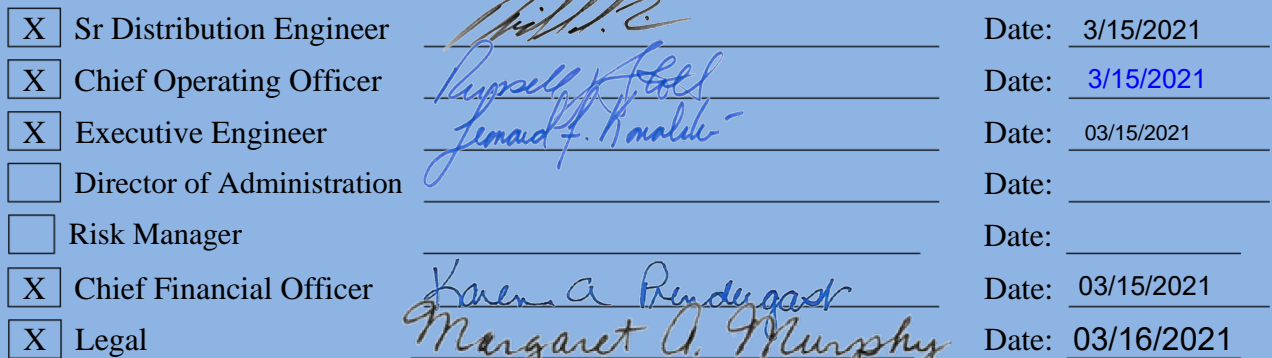 X Sr Distribution Engineer Date: 3/15/2021
X Chief Operating Officer Russell J Stoll Date: 3/15/2021
X Executive Engineer Leonard F. Kowalski Date: 03/15/2021
Director of Administration Date:
Risk Manager Date:
X Chief Financial Officer Karen A Prendergast Date: 03/15/2021
X Legal Margaret A. Murphy Date: 03/16/2021